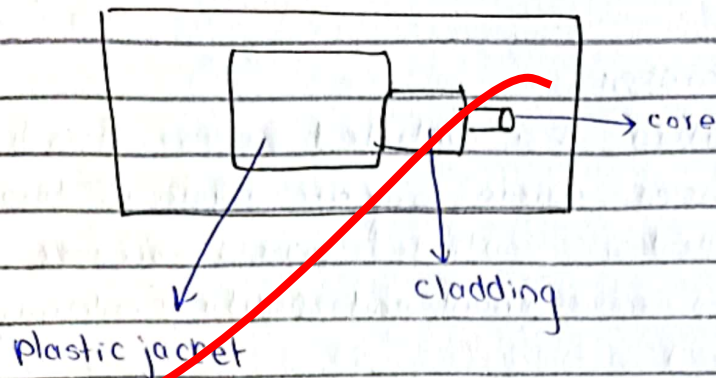 core
cladding
plastic jacket